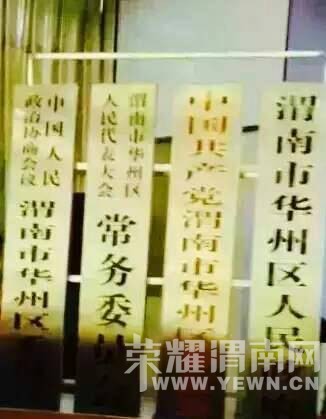 中国人民
政治协商会议
渭南市华州区
渭南市华州区
人民代表大会
常务委员会
中国共产党渭南市华州区
渭南市华州区人民
荣耀渭南网
WWW.YEWN.CN